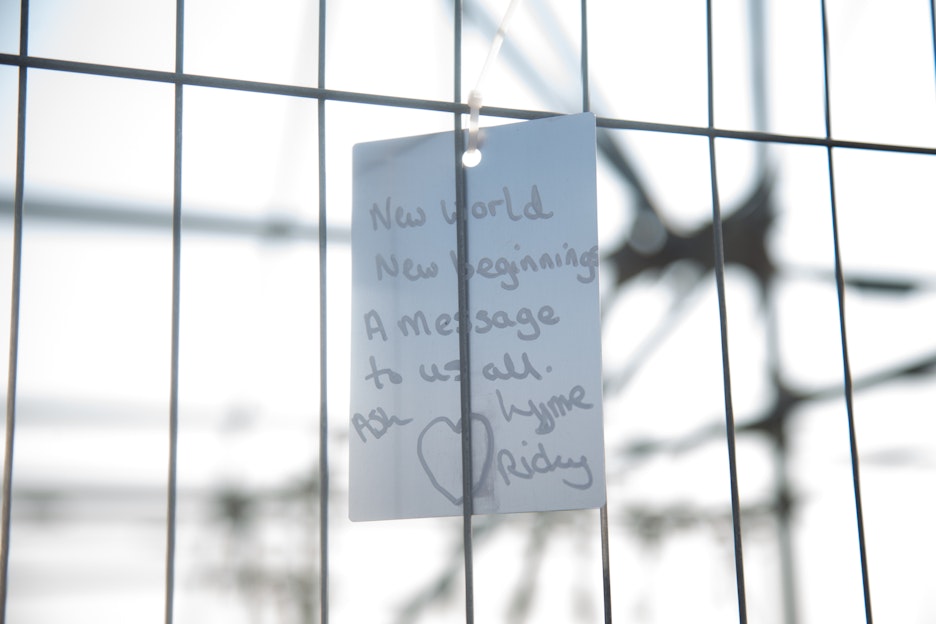 New World
New beginnings
A message
to us all.
Ash
Ricky